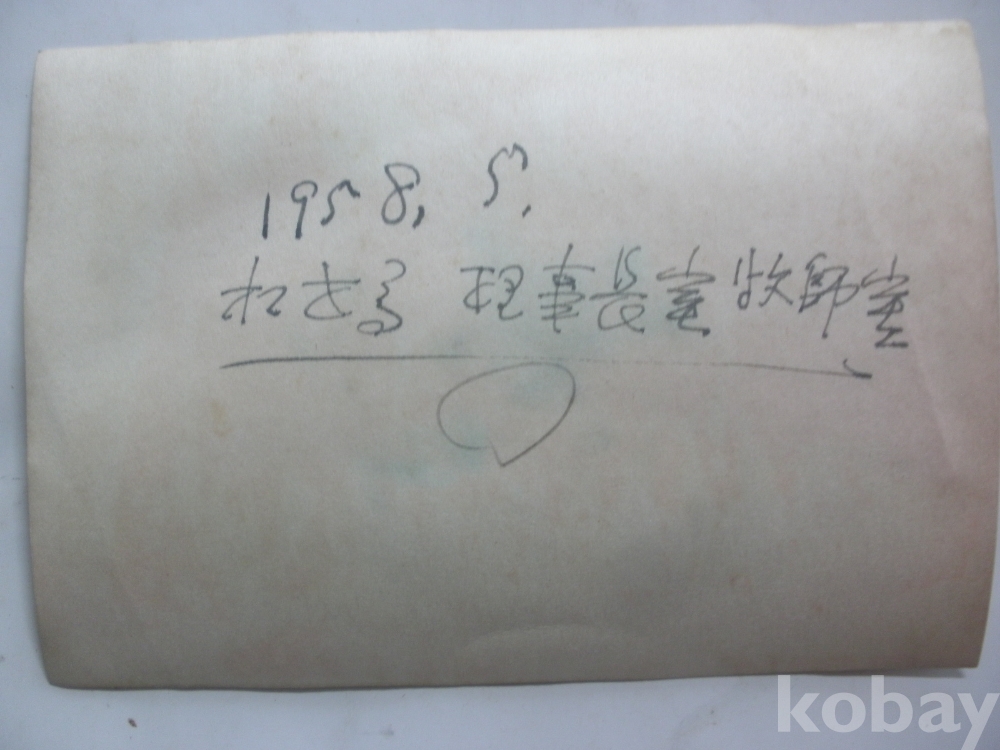 1958, 5.
理事長室 牧師室
kobay